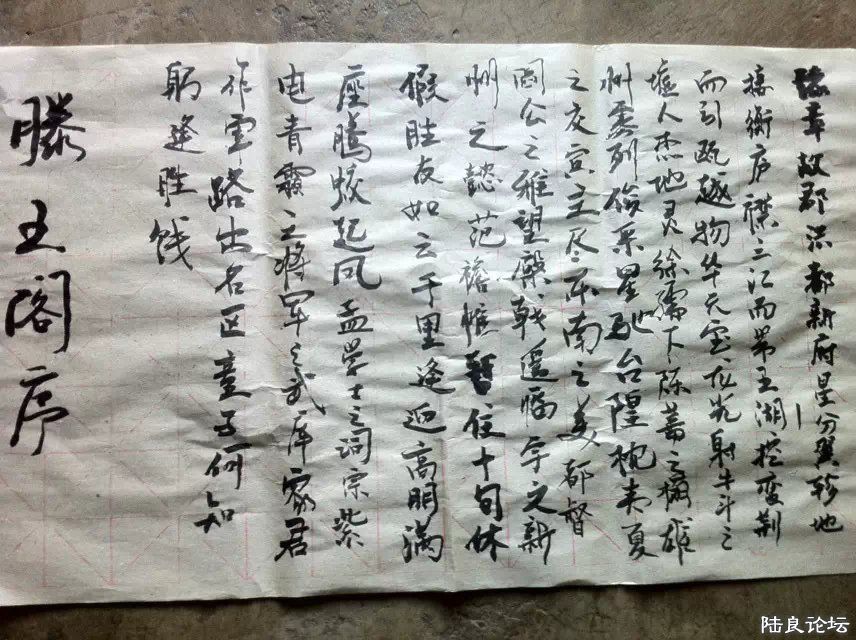 豫章故郡洪都新府星分翼轸地
接衡庐襟三江而带五湖控蛮荆
而引瓯越物华天宝龙光射牛斗之
墟人杰地灵徐孺下陈蕃之榻雄
州雾列俊采星驰台隍枕夷夏
之交宾主尽东南之美都督
阎公之雅望棨戟遥临宇文新
州之懿范襜帷暂住十旬休
假胜友如云千里逢迎高朋满
座腾蛟起凤孟学士之词宗紫
电青霜王将军之武库家君
作宰路出名区童子何知
躬逢胜饯
滕王阁序
陆良论坛